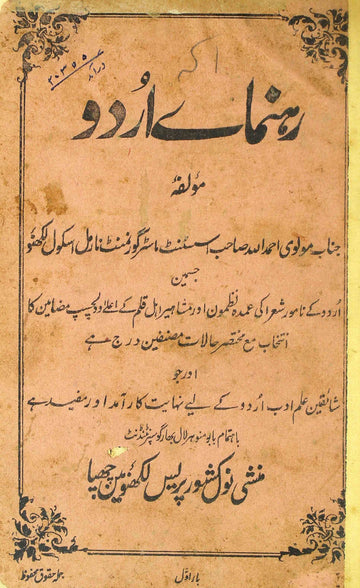 رہنماے اُردو
مؤلفۂ
جناب مولوی احمد اللہ صاحب اسسٹنٹ ماسٹر گورنمنٹ نارمل اسکول لکھنؤ
جسمین
اُردو کے نامور شعرا کی عمدہ نظمون اور مشاہیر اہل قلم کے اعلا و دلچسپ مضامین کا
انتخاب مع مختصر حالات مصنفین درج ہے
اور جو
شائقین علم ادب اُردو کے لیے نہایت کارآمد اور مفید ہے
باہتمام بابو منوہر لال بھارگو سپرنٹنڈنٹ
منشی نول کشور پریس لکھنؤ مین چھپا
بار اوّل
جملہ حقوق محفوظ